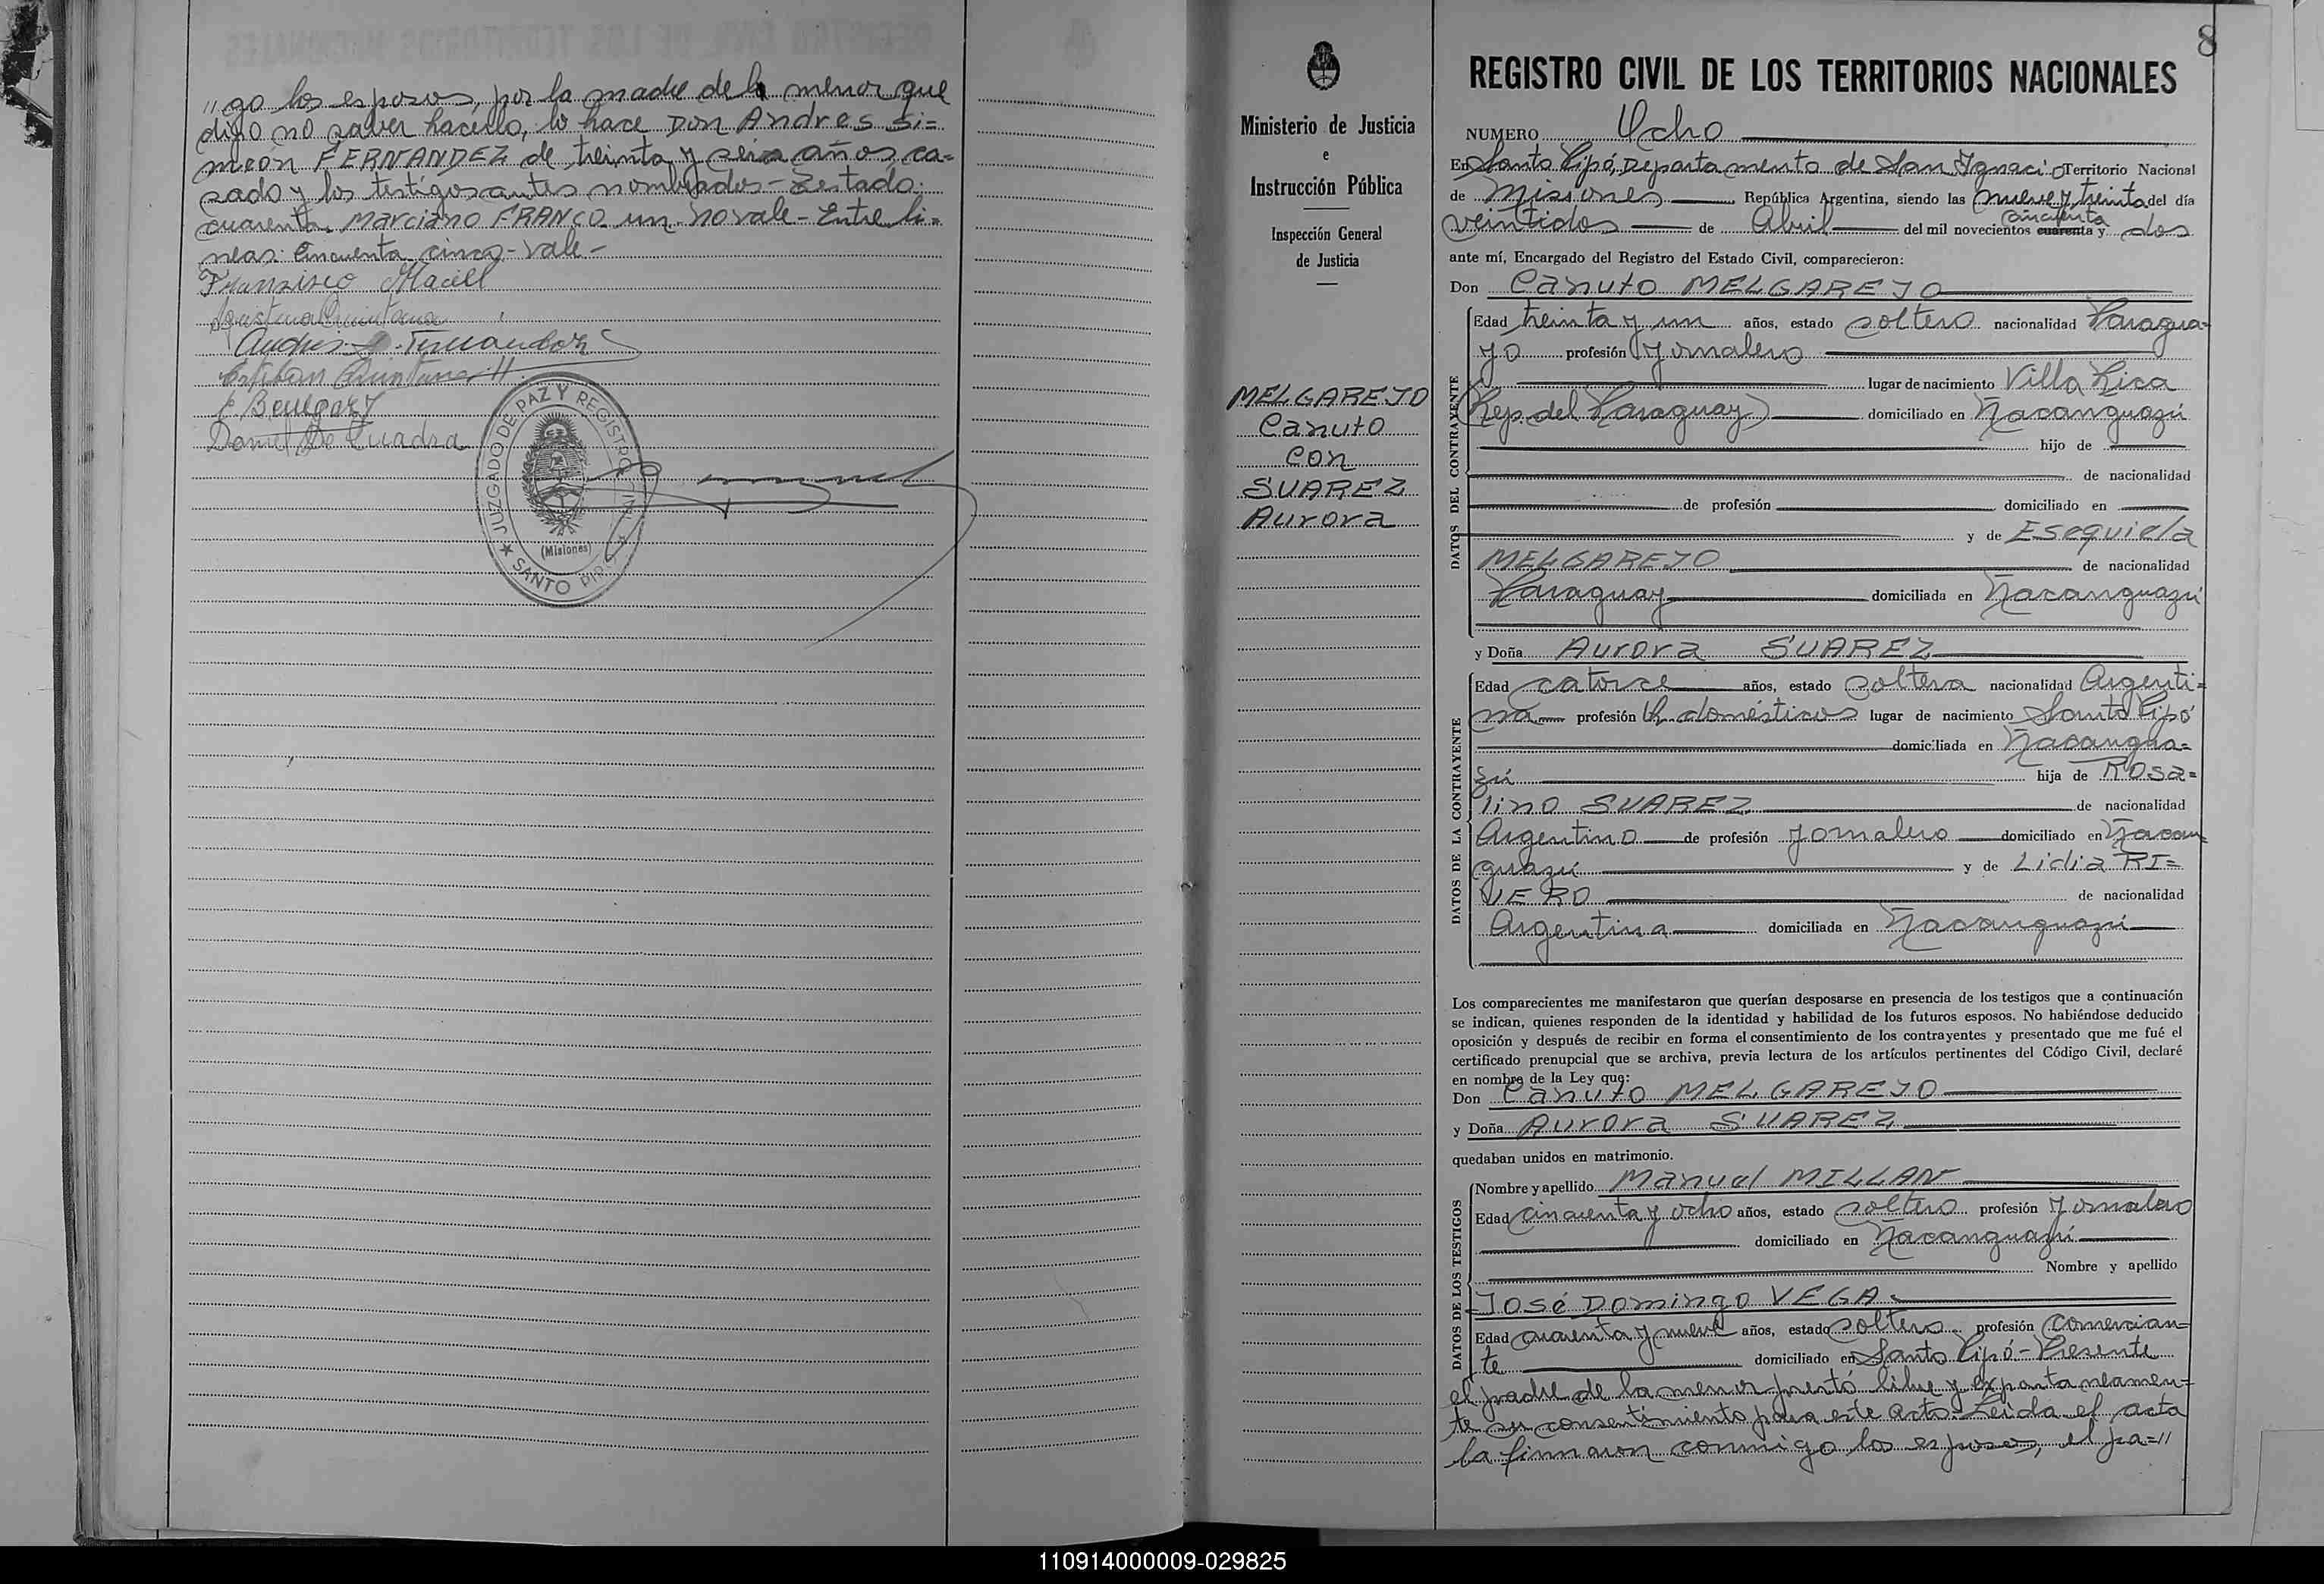 "go los esposos, por la madre de la menor que
dijo no saber hacerlo, lo hace Don Andres Si=
meon FERNANDEZ de treinta y seis años, ca=
sado y los testigos antes nombrados - Testado:
cuarenta. Marciano FRANCO. un. no vale - Entre li=
neas: Cincuenta. cinco - vale -
Fransisco Maciel
Agustina Quintana
Andres S. Fernandez
Esteban Quintana H.
Daniel De Cuadra
JUZGADO DE PAZ Y REGISTRO CIVIL
(Misiones)
SANTO PIPO
8
Ministerio de Justicia
e
Instrucción Pública
Inspección General
de Justicia
MELGAREJO
Canuto
con
SUAREZ
Aurora
REGISTRO CIVIL DE LOS TERRITORIOS NACIONALES
NUMERO Ocho
En Santo Pipó, Departamento de San Ignacio Territorio Nacional
de Misiones República Argentina, siendo las nueve y treinta del día
cincuenta
veintidos de Abril del mil novecientos cuarenta y dos
ante mí, Encargado del Registro del Estado Civil, comparecieron:
Don Canuto MELGAREJO
DATOS DEL CONTRAYENTE
Edad treinta y un años, estado soltero nacionalidad Paragua=
yo profesión Jornalero
lugar de nacimiento Villa Rica
(Rep. del Paraguay) domiciliado en Ñacanguazú
hijo de
de nacionalidad
de profesión domiciliado en
y de Esequiela
MELGAREJO de nacionalidad
Paraguay domiciliada en Ñacanguazú
y Doña Aurora SUAREZ
DATOS DE LA CONTRAYENTE
Edad catorce años, estado soltera nacionalidad Argenti=
na profesión Q. domésticos lugar de nacimiento Santo Pipó
domiciliada en Ñacangua=
zú hija de Rosa=
lino SUAREZ de nacionalidad
Argentino de profesión Jornalero domiciliado en Ñacan=
guazú y de Lidia RI=
VERO de nacionalidad
Argentina domiciliada en Ñacanguazú
Los comparecientes me manifestaron que querían desposarse en presencia de los testigos que a continuación
se indican, quienes responden de la identidad y habilidad de los futuros esposos. No habiéndose deducido
oposición y después de recibir en forma el consentimiento de los contrayentes y presentado que me fué el
certificado prenupcial que se archiva, previa lectura de los artículos pertinentes del Código Civil, declaré
en nombre de la Ley que:
Don Canuto MELGAREJO
y Doña Aurora SUAREZ
quedaban unidos en matrimonio.
DATOS DE LOS TESTIGOS
Nombre y apellido Manuel MILLAN
Edad cincuenta y ocho años, estado soltero profesión Jornalero
domiciliado en Ñacanguazú
Nombre y apellido
José Domingo VEGA
Edad cuarenta y nueve años, estado soltero profesión Comercian=
te domiciliado en Santo Pipó - Presente
el padre de la menor prestó libre y expontaneamen=
te su consentimiento para este acto. Leida el acta
la firmaron conmigo los esposos, el pa="
110914000009-029825